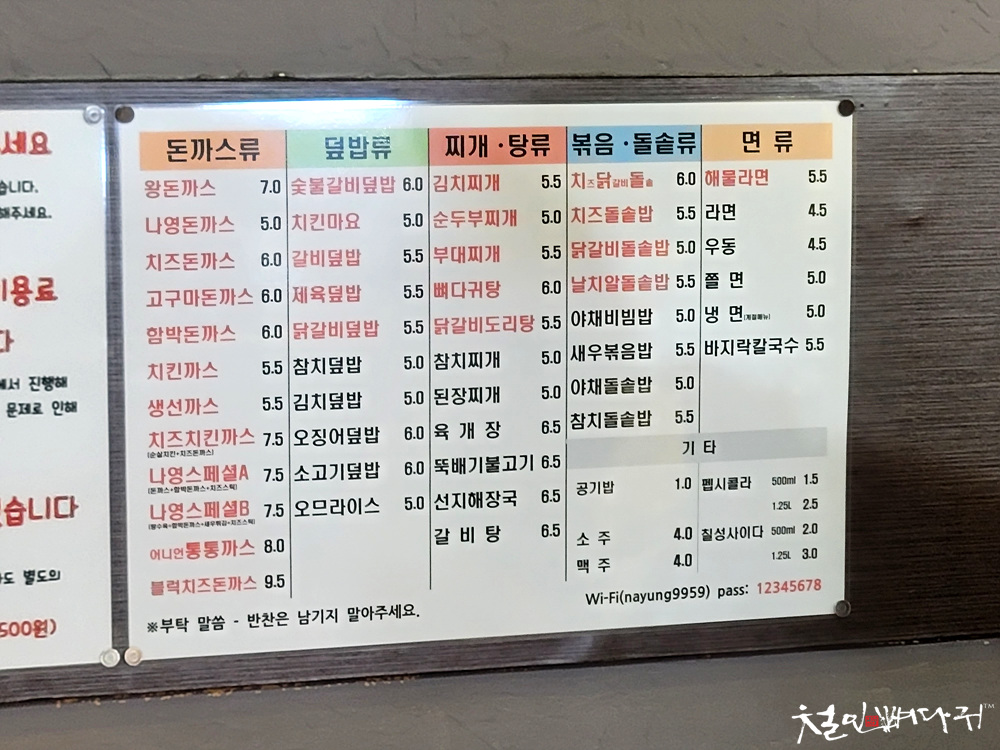 세요
습니다.
해주세요.
이용료
다
에서 진행해
문제로 인해
있습니다
도 별도의
500원)
돈까스류
왕돈까스 7.0
나영돈까스 5.0
치즈돈까스 6.0
고구마돈까스 6.0
함박돈까스 6.0
치킨까스 5.5
생선까스 5.5
치즈치킨까스 7.5
(순살치킨+치즈돈까스)
나영스페셜A 7.5
(돈까스+함박돈까스+치즈스틱)
나영스페셜B 7.5
(탕수육+함박돈까스+새우튀김+치즈스틱)
어니언통통까스 8.0
블럭치즈돈까스 9.5
덮밥류
숯불갈비덮밥 6.0
치킨마요 5.0
갈비덮밥 5.5
제육덮밥 5.5
닭갈비덮밥 5.5
참치덮밥 5.0
김치덮밥 5.0
오징어덮밥 6.0
소고기덮밥 6.0
오므라이스 5.0
찌개·탕류
김치찌개 5.5
순두부찌개 5.0
부대찌개 5.5
뼈다귀탕 6.0
닭갈비도리탕 5.5
참치찌개 5.0
된장찌개 5.0
육 개 장 6.5
뚝배기불고기 6.5
선지해장국 6.5
갈 비 탕 6.5
볶음·돌솥류
치즈닭갈비돌솥 6.0
치즈돌솥밥 5.5
닭갈비돌솥밥 5.0
날치알돌솥밥 5.5
야채비빔밥 5.0
새우볶음밥 5.5
야채돌솥밥 5.0
참치돌솥밥 5.5
면 류
해물라면 5.5
라면 4.5
우동 4.5
쫄 면 5.0
냉 면(계절메뉴) 5.0
바지락칼국수 5.5
기 타
공기밥 1.0
소 주 4.0
맥 주 4.0
펩시콜라 500ml 1.5
1.25L 2.5
칠성사이다 500ml 2.0
1.25L 3.0
Wi-Fi(nayung9959) pass: 12345678
※부탁 말씀 - 반찬은 남기지 말아주세요.
철인뼈다귀™